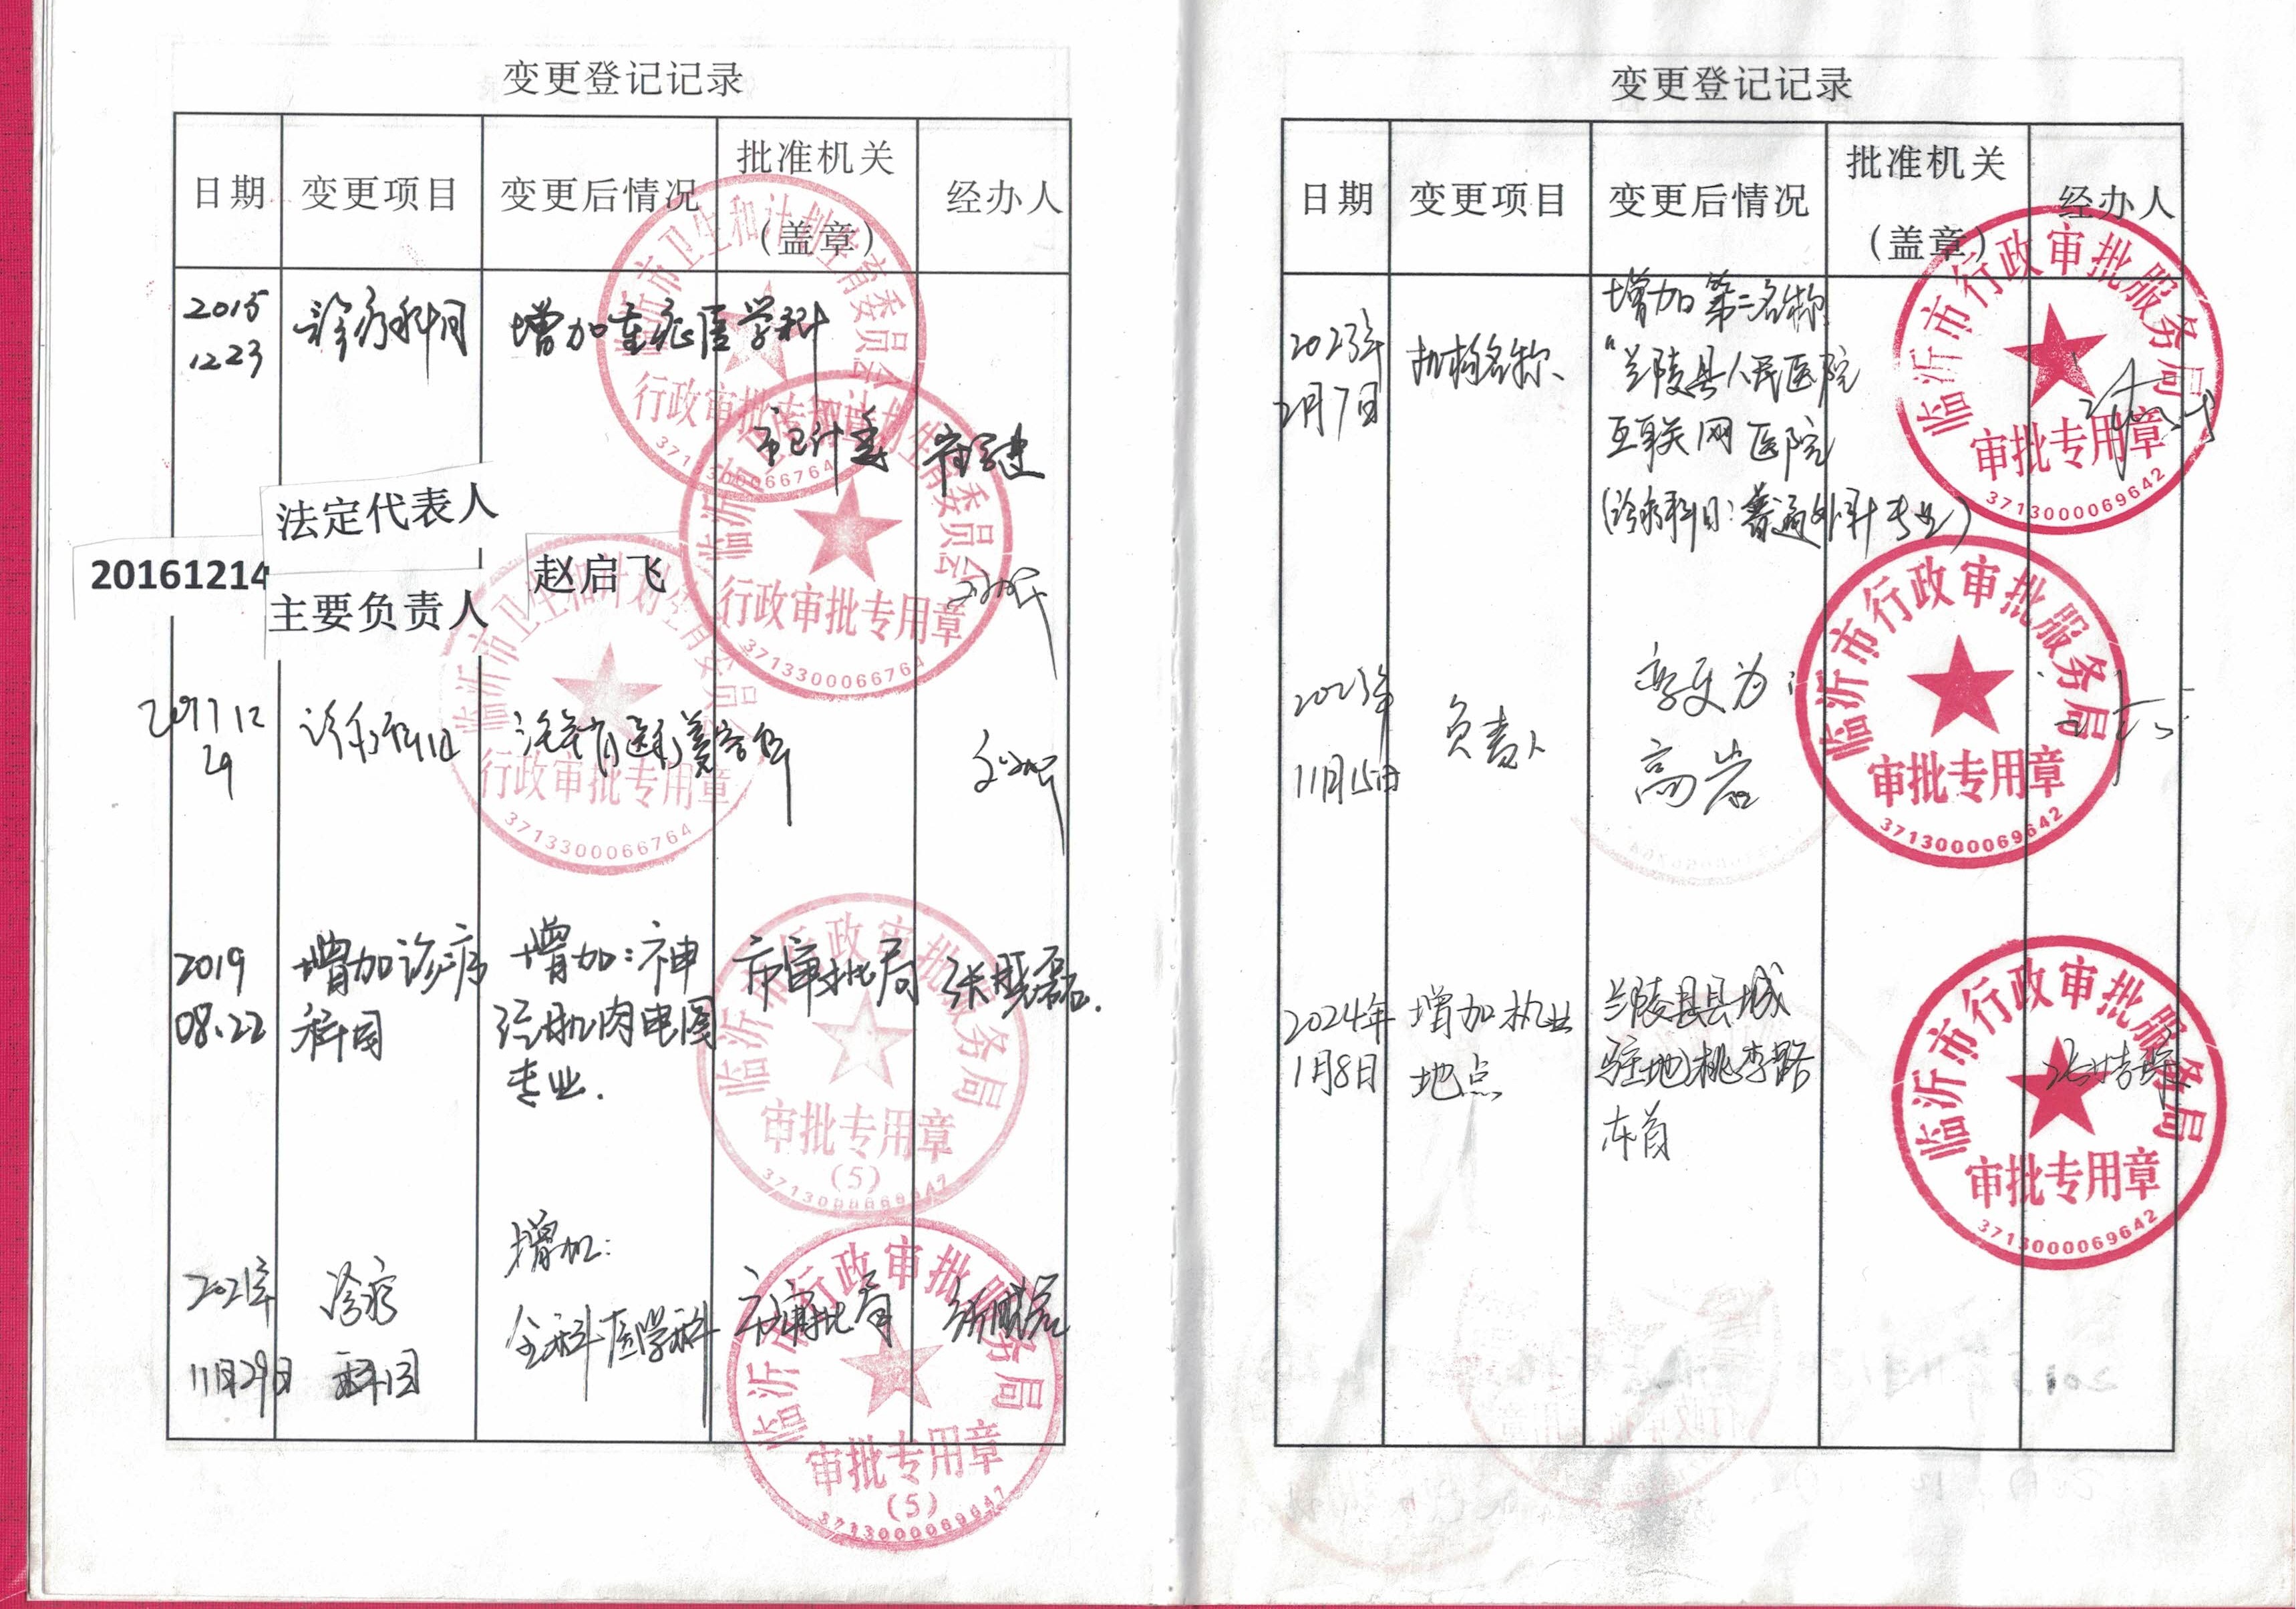 变更登记记录
日期 变更项目 变更后情况 批准机关（盖章） 经办人
2015
12.23
诊疗科目
增加重症医学科
市卫计委
临沂市卫生和计划生育委员会
行政审批专用章
3713300066764
20161214
法定代表人
主要负责人
赵启飞
临沂市卫生和计划生育委员会
行政审批专用章
3713300066764
2017 12
诊疗科目
临沂市卫生和计划生育委员会
行政审批专用章
3713300066764
2019
08.22
增加诊疗
科目
增加：神
经肌肉电图
专业.
市审批局
张晓磊.
临沂市行政审批服务局
审批专用章
（5）
2021年
11月29日
诊疗
科目
增加：
全科医学科
市审批局
临沂市行政审批服务局
审批专用章
（5）
变更登记记录
日期 变更项目 变更后情况 批准机关（盖章） 经办人
2023年
2月7日
机构名称
增加第二名称
“兰陵县人民医院
互联网医院
（诊疗科目：普通外科专业）
临沂市行政审批服务局
审批专用章
3713000069642
2023年
11月15日
负责人
变更为：
高岩
临沂市行政审批服务局
审批专用章
3713000069642
2024年
1月8日
增加执业
地点
兰陵县县城
驻地桃李路
东首
临沂市行政审批服务局
审批专用章
3713000069642